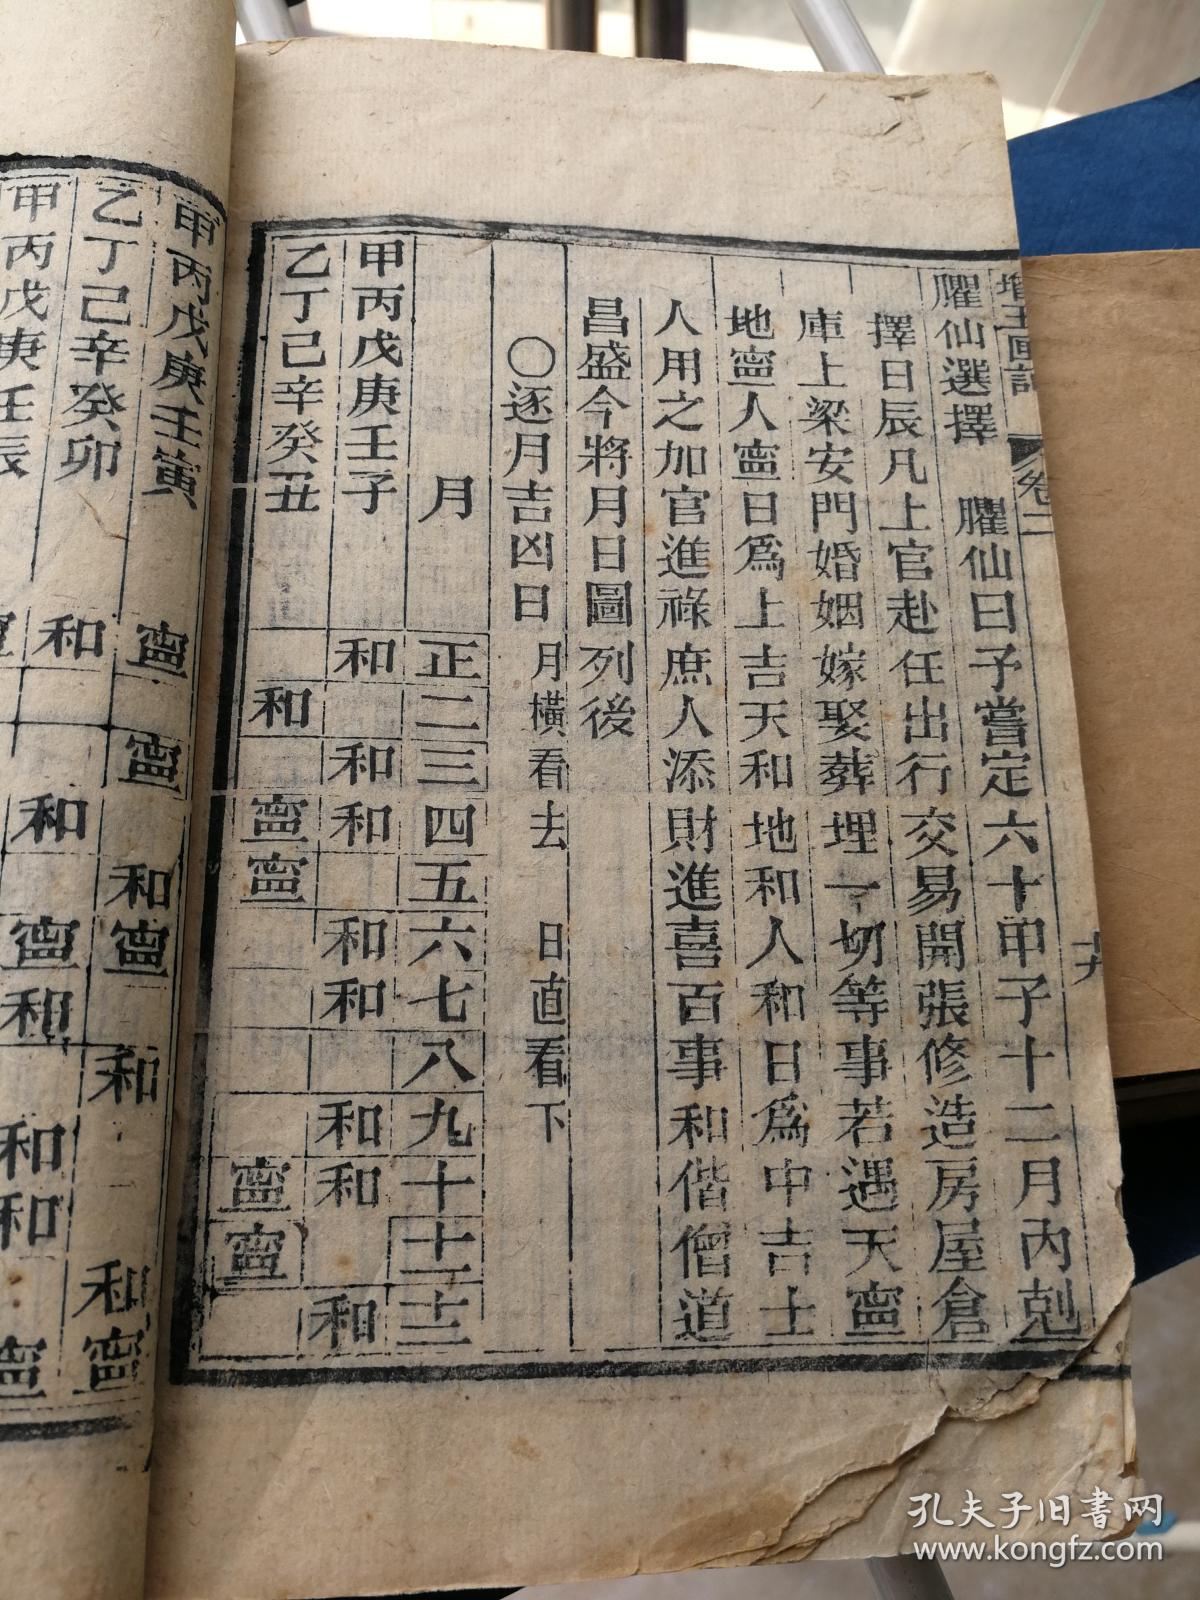 增玉匣記 卷二
臞仙選擇 臞仙曰予嘗定六十甲子十二月內剋
擇日辰凡上官赴任出行交易開張修造房屋倉
庫上梁安門婚姻嫁娶葬埋一切等事若遇天寗
地寗人寗日爲上吉天和地和人和日爲中吉士
人用之加官進祿庶人添財進喜百事和偕僧道
昌盛今將月日圖列後
○逐月吉凶日 月橫看去 日直看下
月 正 二 三 四 五 六 七 八 九 十 十一 十二
甲丙戊庚壬子 和 和 和 和 和 和 和 和
乙丁己辛癸丑 和 寗 寗 寗 寗
甲丙戊庚壬寅 寗 寗 和 寗 和 和 寗
乙丁己辛癸卯 和
甲丙戊庚壬辰 和 寗 和 和 和 寗
孔夫子旧书网
www.kongfz.com